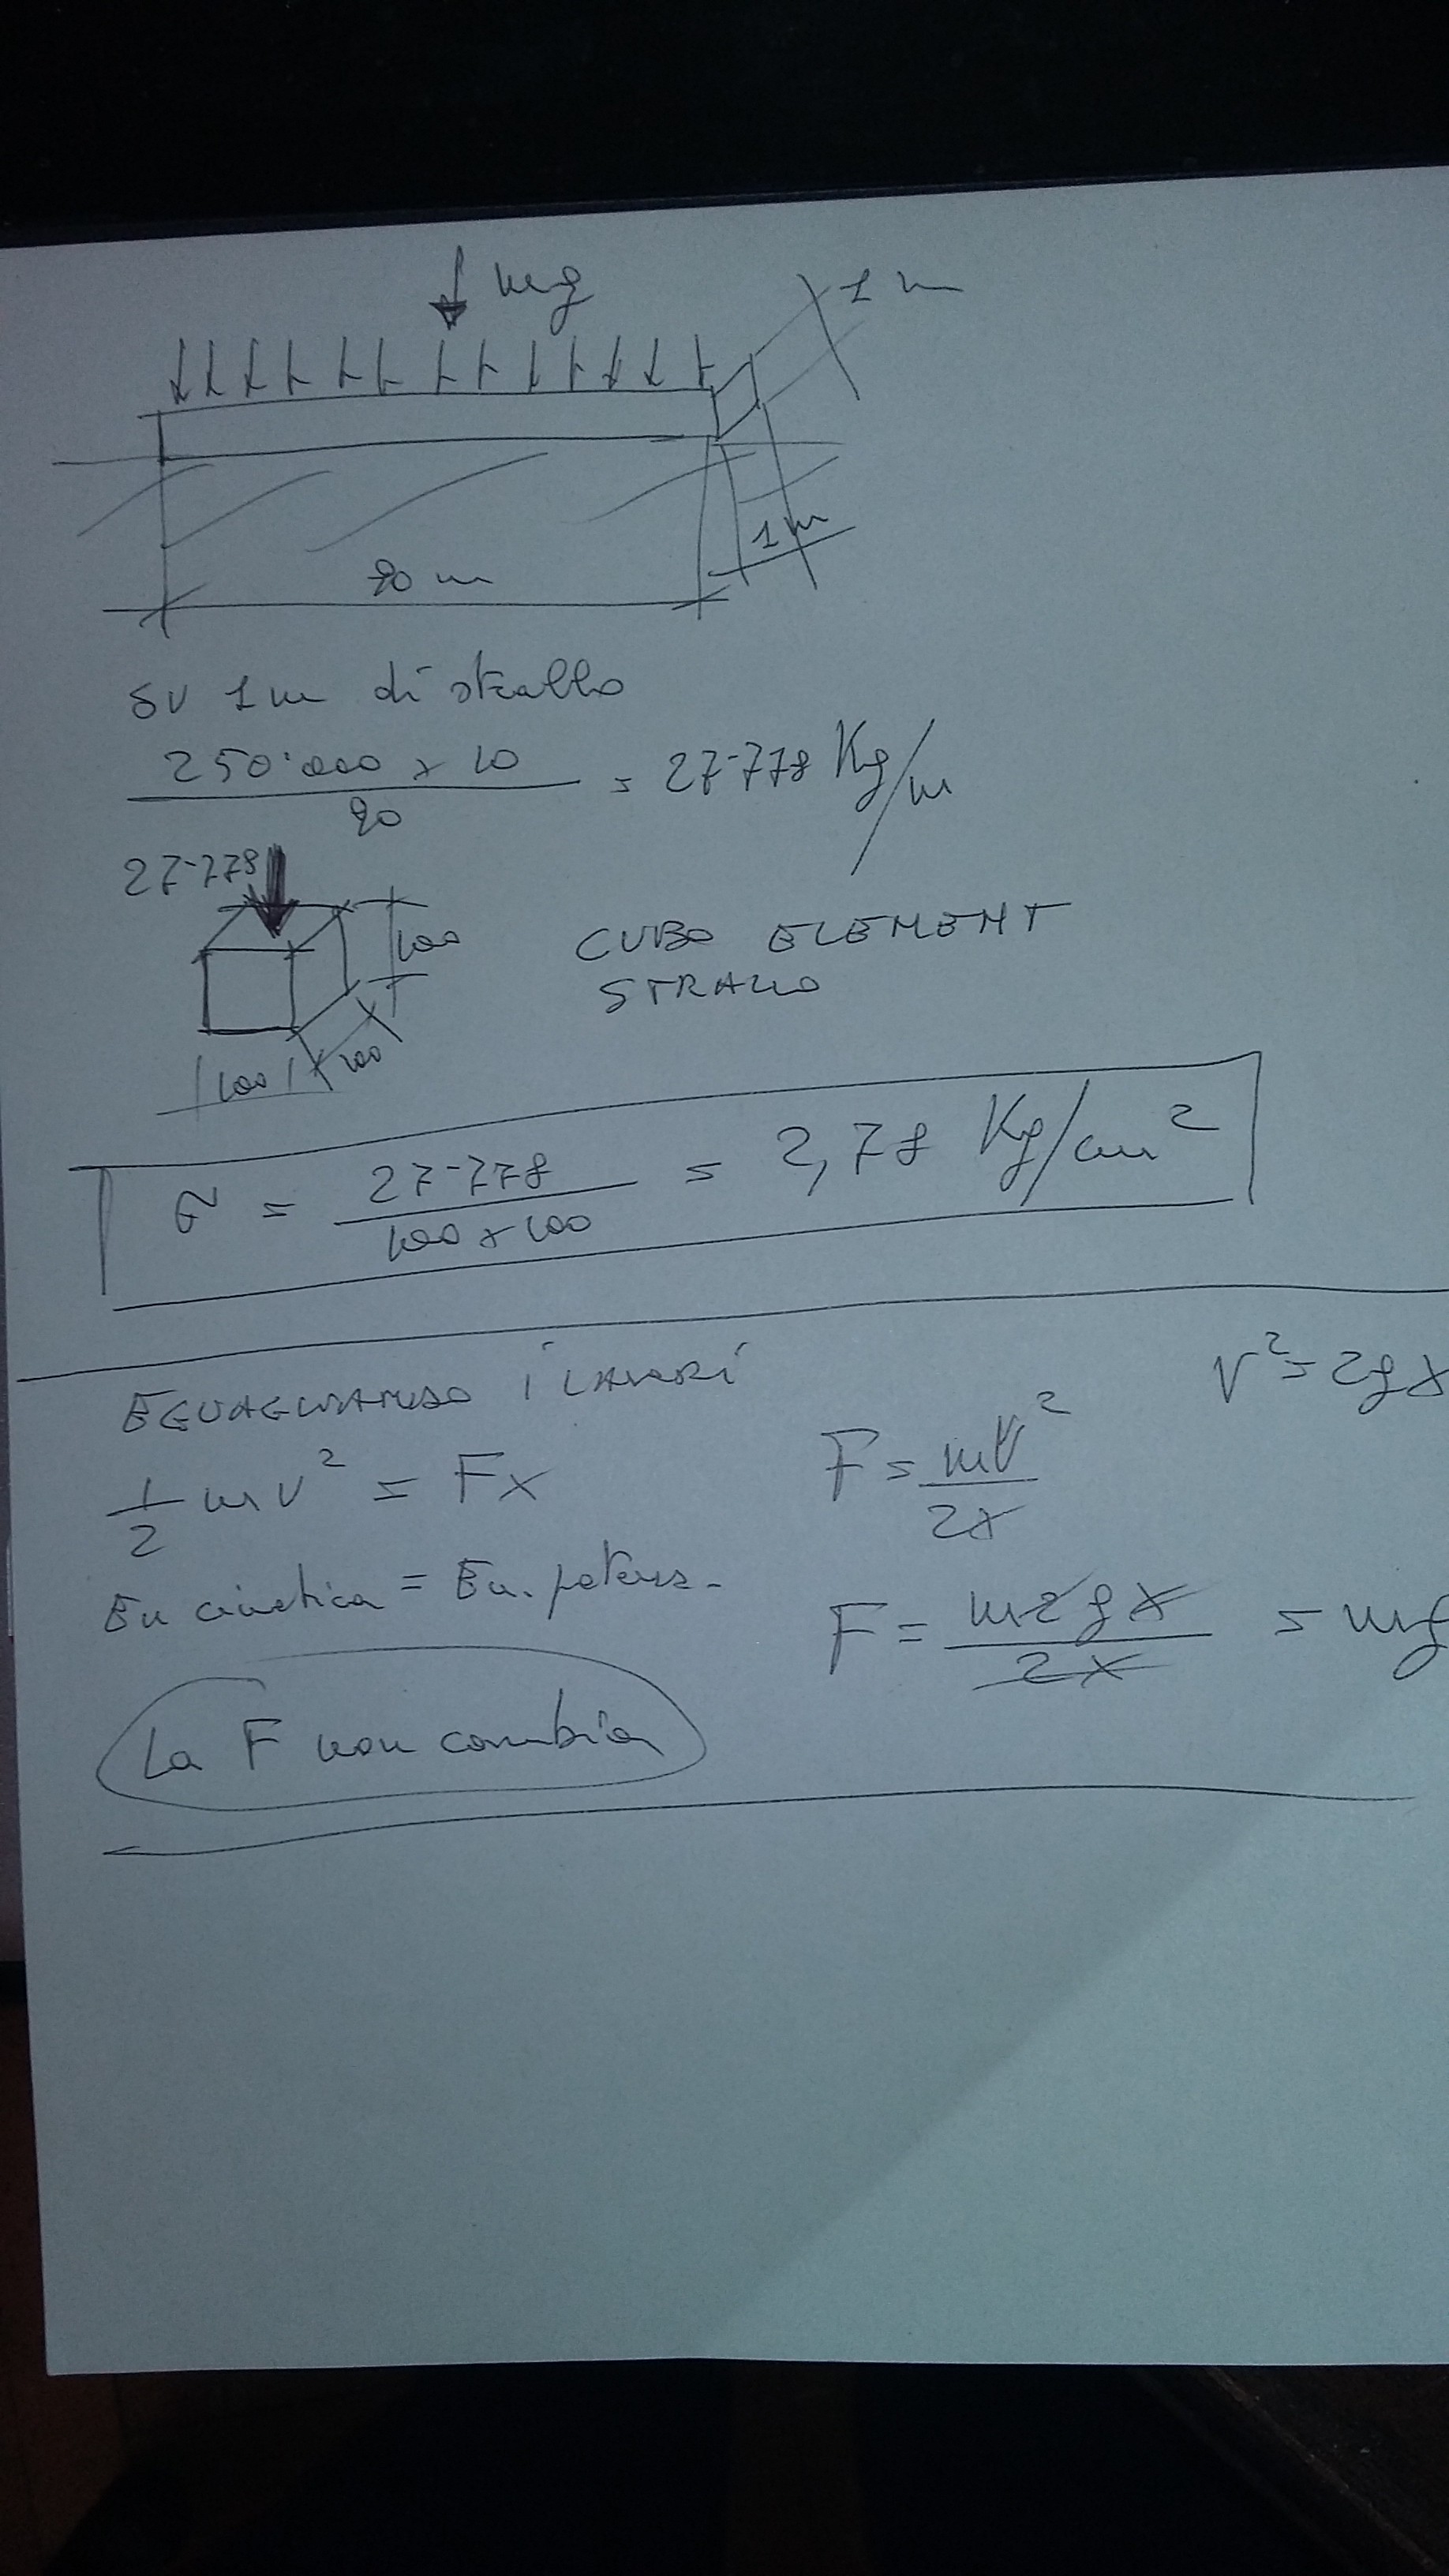 mg
1 m
1m
90 m
SU 1m di strallo
250'000 x 10 / 90 = 27.778 Kg/m
27.778
100
CUBO ELEMENT
STRALLO
100 100
σ = 27.778 / 100 x 100 = 2,78 Kg/cm²
EGUAGLIANDO i LAVORI
v² = 2gx
1/2 mv² = Fx
F = mv² / 2x
En cinetica = En. potenz.
F = m2gx / 2x = mg
La F non cambia